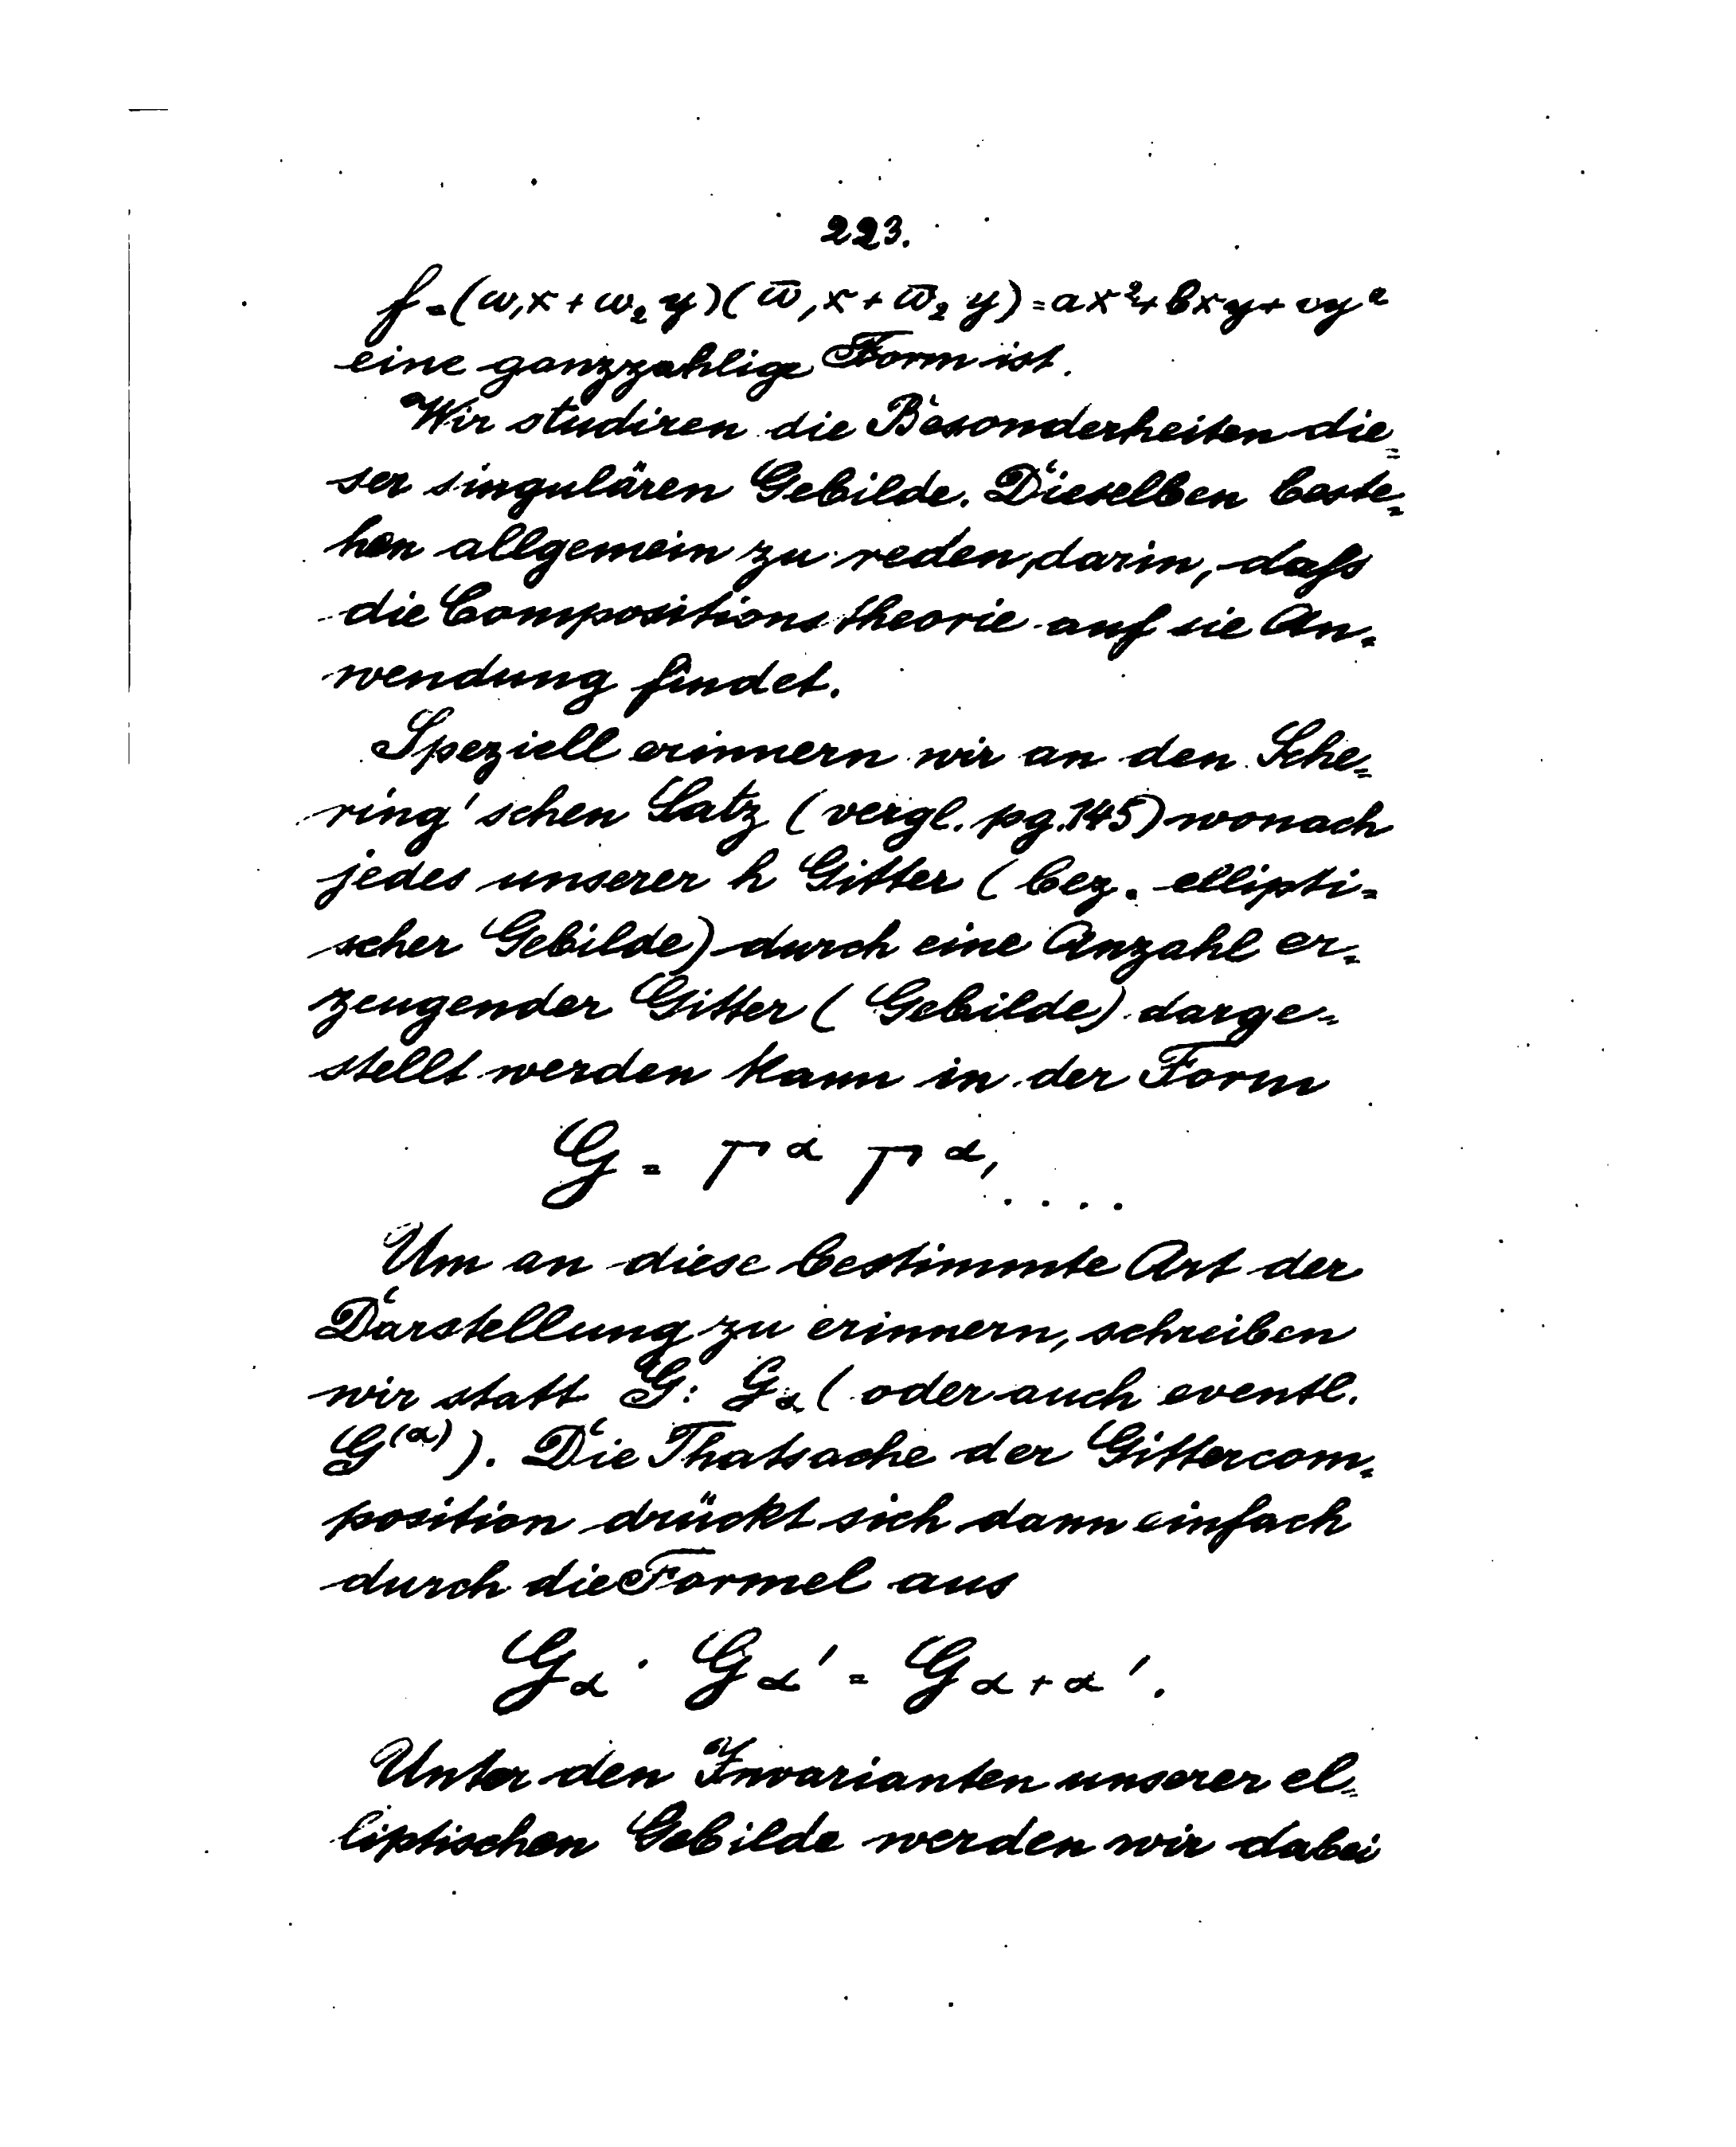 223.
f = (ω₁x + ω₂y)(ω̄₁x + ω̄₂y) = ax² + bxy + cy²
eine ganzzahlige Form ist.
Wir studiren die Besonderheiten die=
ser singulären Gebilde. Dieselben beste=
hen allgemein zu reden, darin, daſs
die Compositionstheorie auf sie An=
wendung findet.
Speziell erinnern wir an den Sche=
ring'schen Satz (vergl. pg. 145) wonach
jedes unserer h Gitter (bez. ellipti=
scher Gebilde) durch eine Anzahl er=
zeugender Gitter (Gebilde) darge=
stellt werden kann in der Form
G = Γ^α Γ^α, ....
Um an diese bestimmte Art der
Darstellung zu erinnern, schreiben
wir statt G: G_α (oder auch eventl.
G^(α)). Die Thatsache der Gittercom=
position drückt sich dann einfach
durch die Formel aus
G_α · G_α' = G_α+α'.
Unter den Invarianten unserer el=
liptischen Gebilde werden wir dabei